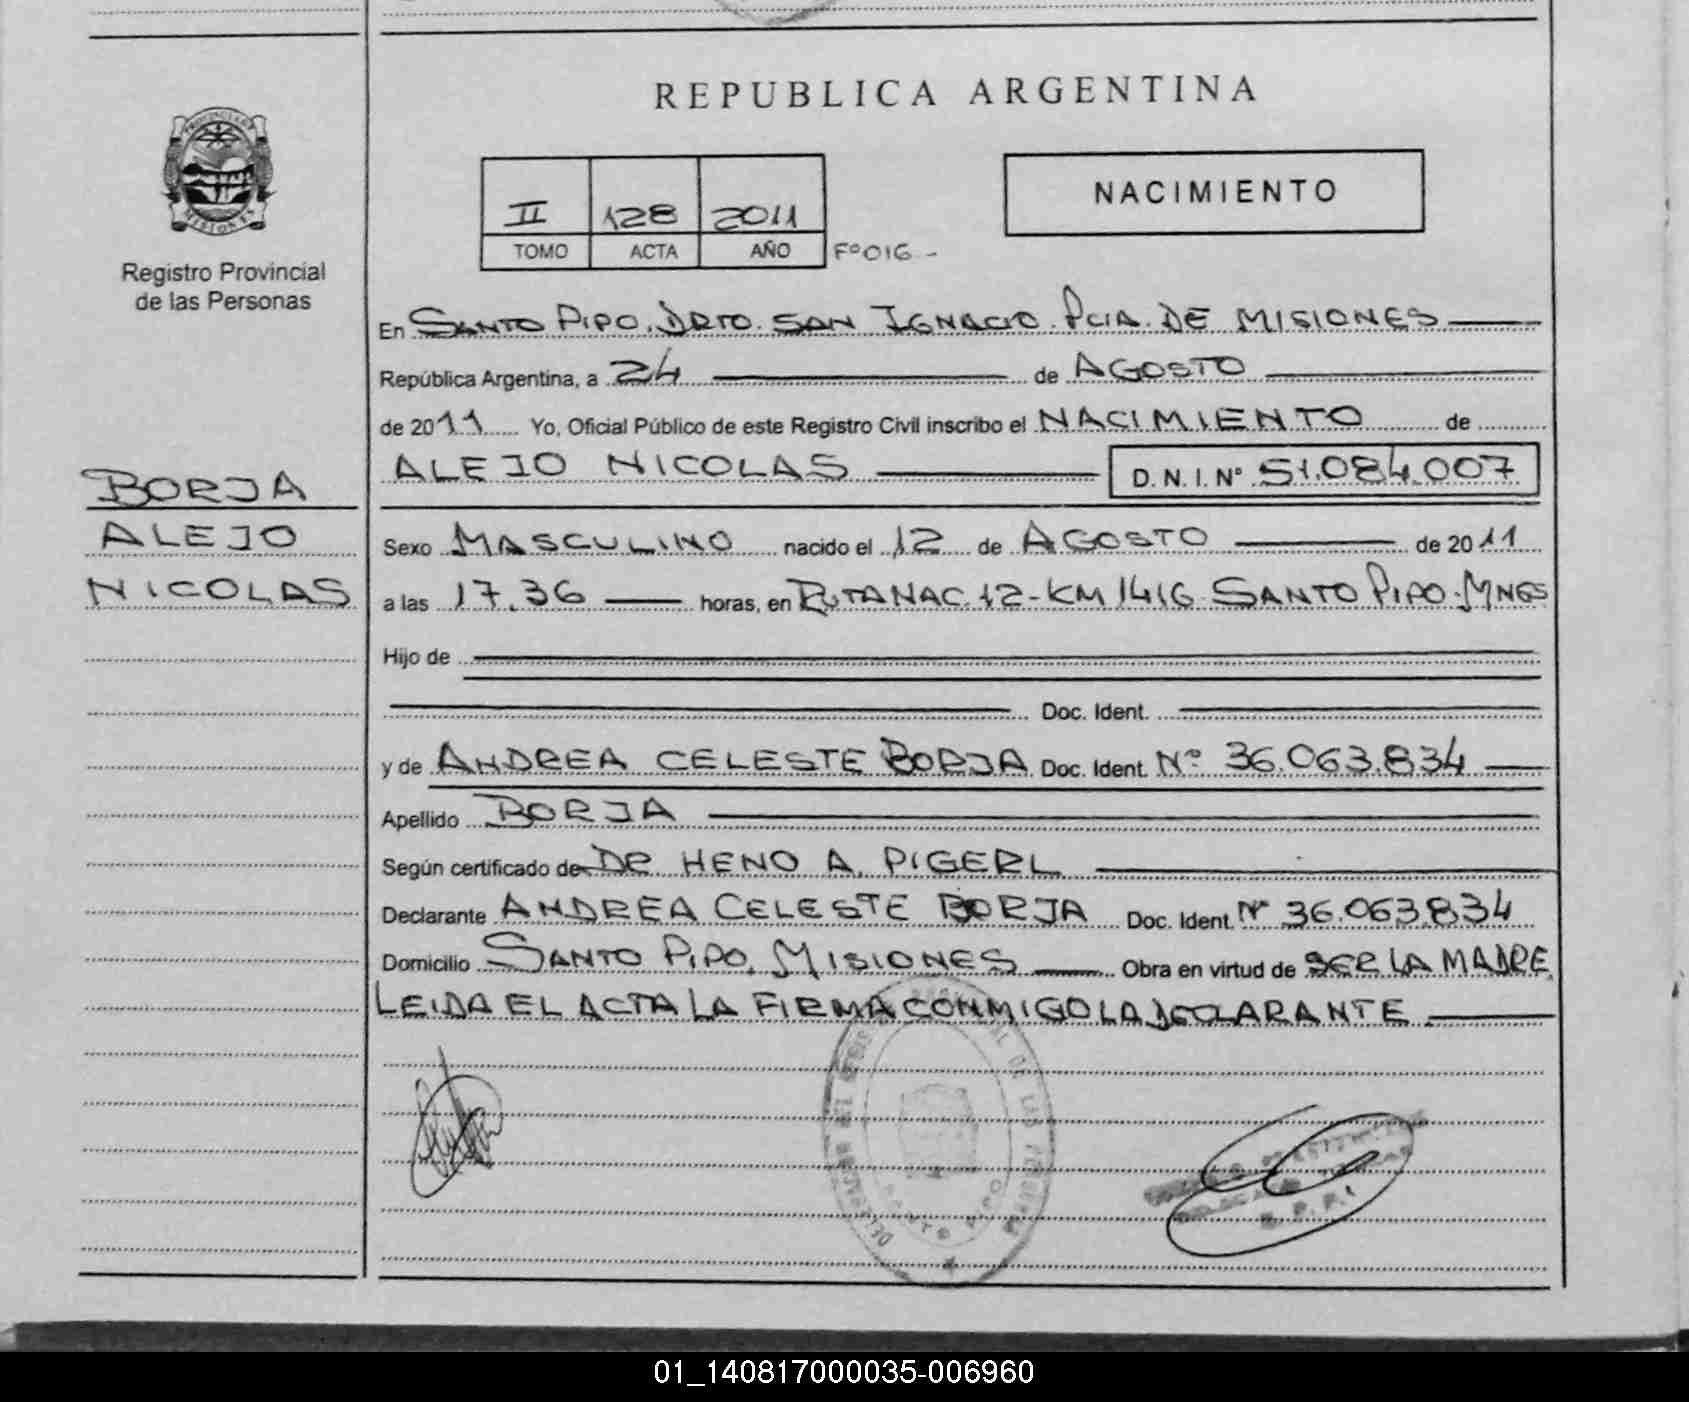 REPUBLICA ARGENTINA
PROVINCIA DE
MISIONES
Registro Provincial
de las Personas
II 128 2011
TOMO ACTA AÑO Fº016-
NACIMIENTO
BORJA
ALEJO
NICOLAS
En SANTO PIPO. DRTO. SAN IGNACIO. PCIA. DE MISIONES
República Argentina, a 24 de AGOSTO
de 2011 Yo, Oficial Público de este Registro Civil inscribo el NACIMIENTO de
ALEJO NICOLAS D. N. I. Nº 51.084.007
Sexo MASCULINO nacido el 12 de AGOSTO de 2011
a las 17.36 horas, en RUTA NAC. 12-KM 1416 SANTO PIPO-MNES
Hijo de
Doc. Ident.
y de ANDREA CELESTE BORJA Doc. Ident. Nº 36.063.834
Apellido BORJA
Según certificado de DR HENO A. PIGERL
Declarante ANDREA CELESTE BORJA Doc. Ident. Nº 36.063.834
Domicilio SANTO PIPO, MISIONES Obra en virtud de SER LA MADRE
LEIDA EL ACTA LA FIRMA CONMIGO LA DECLARANTE
DE LAS PERSONAS
SANTO PIPO
01_140817000035-006960